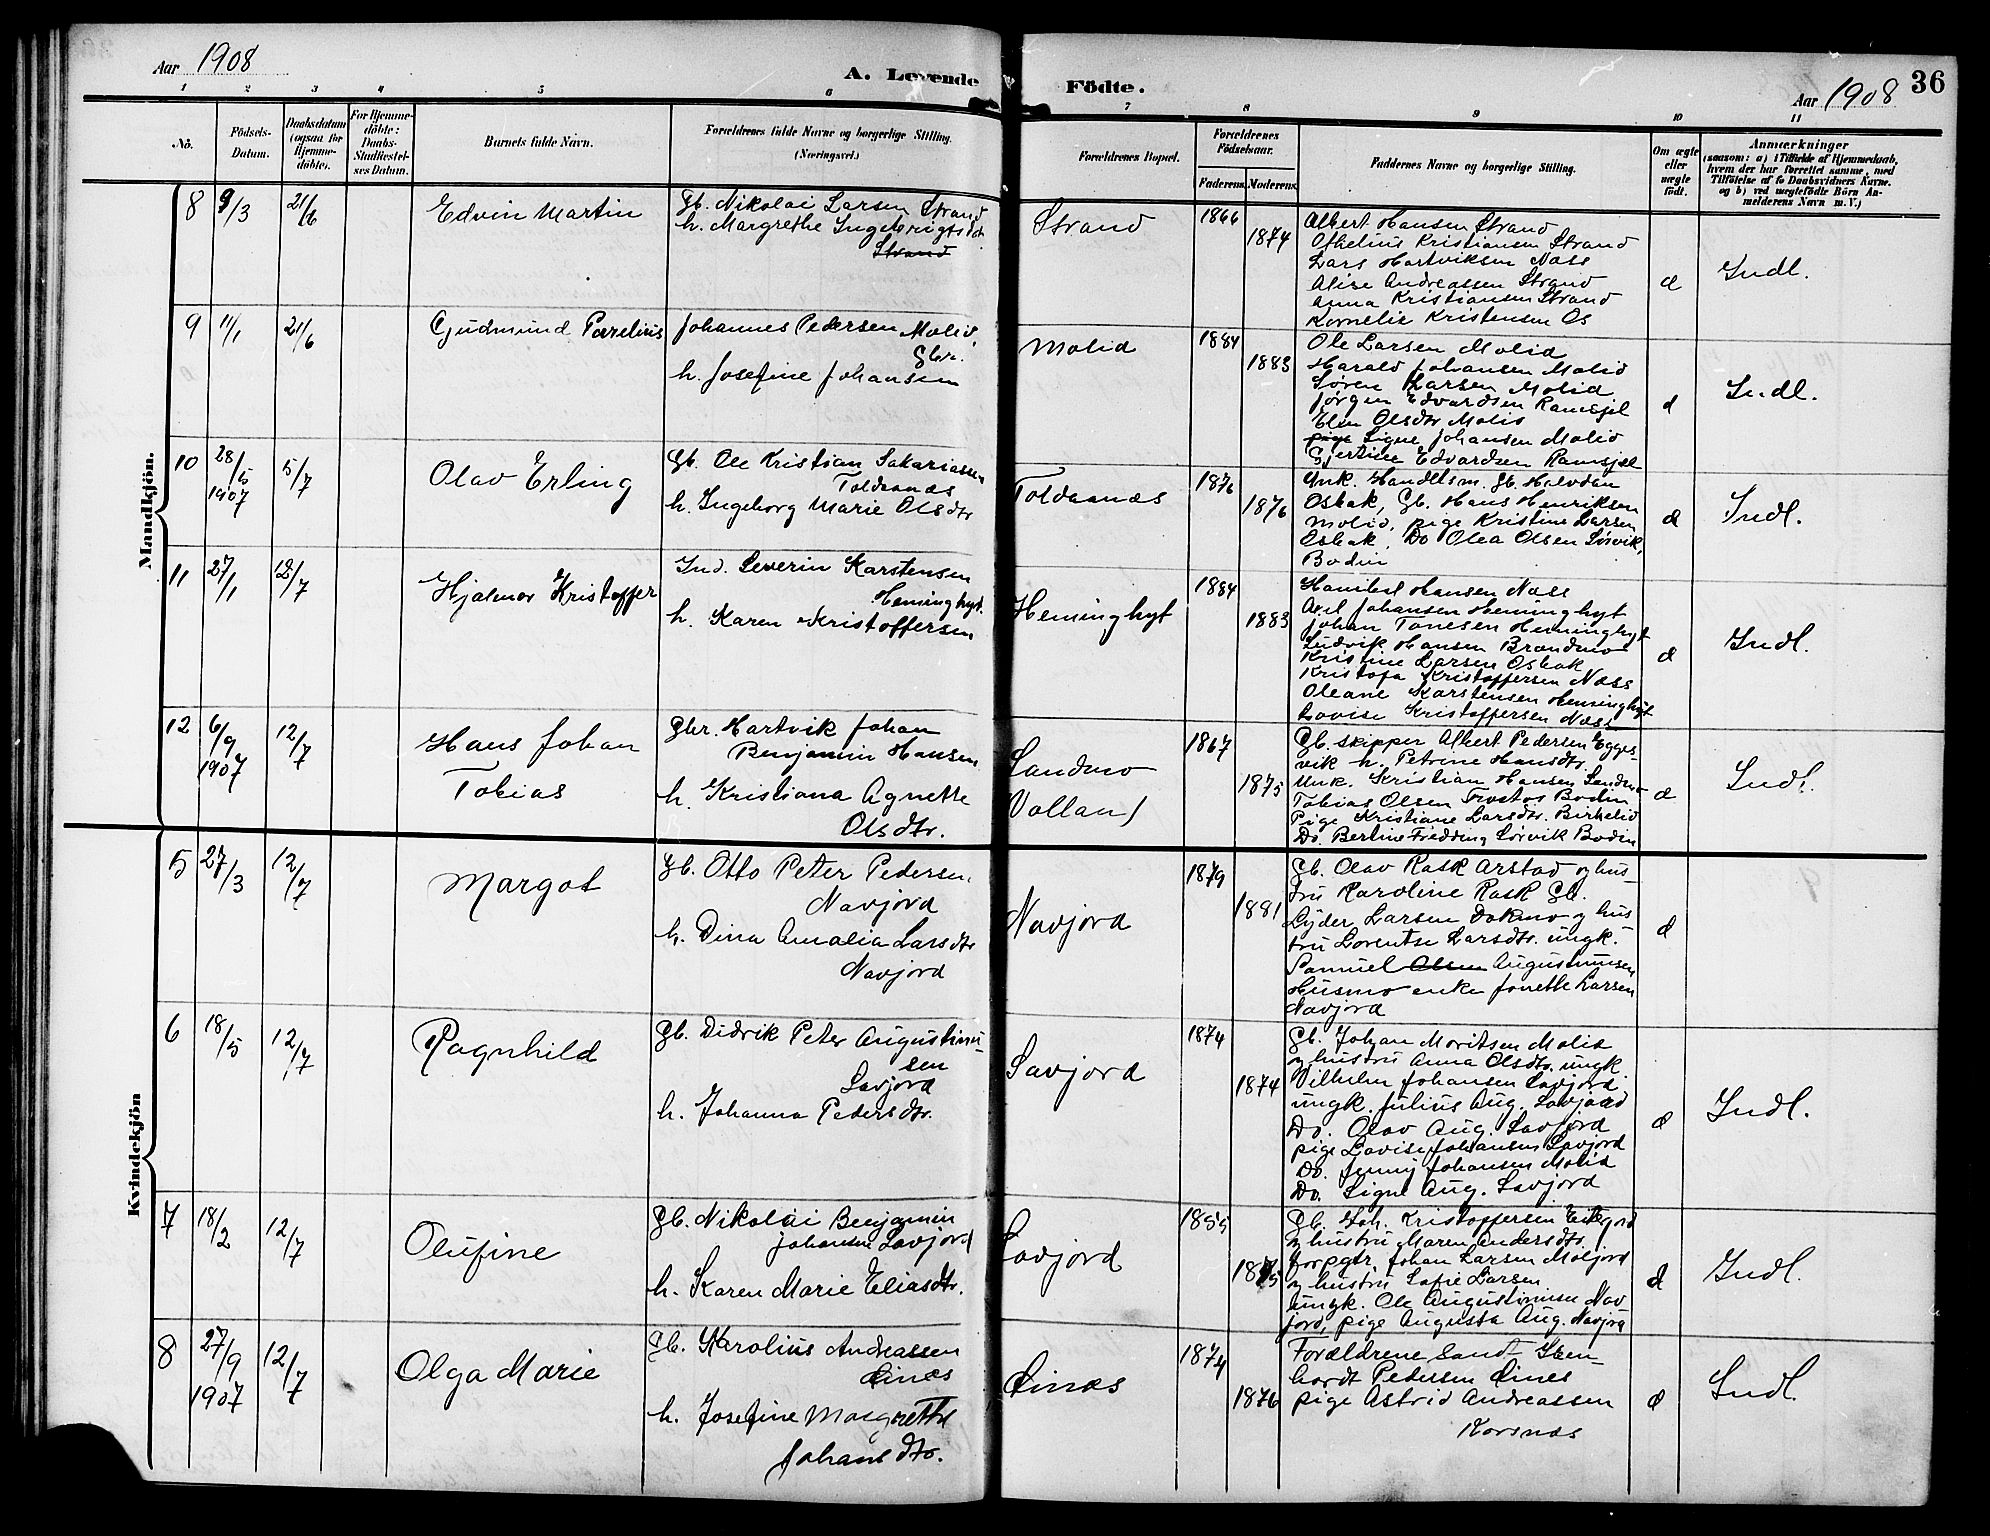 Aar 1908
A. Levende Födte.
Aar 1908 36
1 2 3 4 5 6 7 8 9 10 11
No.
Födsels-
Datum.
Daabsdatum
(ogsaa for
Hjemme-
döbte).
For Hjemme-
döbte:
Daabs-
Stadfæstel-
ses Datum.
Barnets fulde Navn.
Forældrenes fulde Navne og borgerlige Stilling.
(Næringsvei.)
Forældrenes Bopæl.
Forældrenes
Födselsaar.
Faderens. Moderens.
Faddernes Navne og borgerlige Stilling.
Om ægte
eller
uægte
födt.
Anmærkninger
(saasom: a) i Tilfælde af Hjemmedaab,
hvem der har forrettet samme, med
Tilföielse af to Daabsvidners Navne,
og b) ved uægtefödte Börn An-
melderens Navn m. V.)
Mandkjön.
8 9/3 21/6
Edvin Martin
Gb. Nikolai Larsen Strand
h. Margrethe Ingebrigtsdt
Strand
Strand
1866
1874
Albert Hansen Strand
Othelius Kristiansen Strand
Lars Hartviksen Næss
Alise Andreassen Strand
Anna Kristiansen Strand
Kornelie Kristensen Os
d
Indl.
9 11/1 21/6
Gudmund Parelius
Johannes Pedersen Molid,
Gbr.
h. Josefine Johansen
Molid
1884
1883
Ole Larsen Molid
Harald Johansen Molid
Søren Larsen Molid
Jørgen Edvardsen Ramsjel
Elen Olsdtr Molid
pige Signe Johansen Molid
Gjertine Edvardsen Ramsjel
d
Indl.
10 28/5 1907 5/7
Olav Erling
Gb. Ole Kristian Sakariassen
Toldaanæs
h. Ingeborg Marie Olsdtr
Toldaanæs
1876
1876
Ynk. Handelsm. Gb. Halvdan
Osbak, Gb. Hans Henriksen
Molid, pige Kristine Larsen
Osbak, Do Olea Olsen Sørvik,
Bodin
d
Indl.
11 27/1 12/7
Hjalmar Kristoffer
Ind. Severin Karstensen
Heminghyt.
h. Karen Kristoffersen
Heminghyt
1884
1883
Hanibal Hansen Næss
Axel Johansen Heminghyt
Johan Tonesen Heminghyt
Ludvik Hansen Brændmo
Kristine Larsen Osbak
Kristofa Kristoffersen Næss
Oleane Karstensen Heminghyt
Lovise Kristoffersen Næss
d
Indl.
12 6/9 1907 12/7
Hans Johan
Tobias
Gbr. Hartvik Johan
Benjamin Hansen
h. Kristiana Agnette
Olsdtr.
Sandmo
Valland
1867
1875
Gb. skipper Albert Pedersen Egges-
vik h. Petrine Hansdtr.
Unk. Kristian Hansen Sandmo
Tobias Olsen Bodin
Pige Kristiane Larsdtr. Birkelid
Do. Bertine Fredding Sørvik Bodin
d
Indl.
Kvindekjön
5 27/3 12/7
Margot
Gb. Otto Peter Pedersen,
Navjord
h. Dina Amalia Larsdtr
Navjord
Navjord
1879
1881
Gb. Olav Rask Arstad og hus-
tru Karoline Rask Gb.
Lyder Larsen Dokmo og hus
tru Lorentse Larsdtr. ungk.
Samuel Olsen Augustinusen
Husmo enke Jonette Larsen
Navjord
d
6 18/5 12/7
Ragnhild
Gb. Didrik Peter Augustinu-
sen
Savjord
h. Johanna Pedersdtr.
Savjord
1874
1874
Gb. Johan Moritsen Molid
og hustru Anna Olsdtr. ungk
Vilhelm Johansen Savjord
ungk. Julius Aug. Savjord
Do. Olav Aug. Savjord
pige Lovise Johansen Savjord
Do. Jenny Johansen Molid
Do. Signe Aug. Savjord
d
Indl.
7 18/2 12/7
Olufine
Gb. Nikolai Benjamin
Johansen Savjord
h. Karen Marie Eliasdtr.
Savjord
1855
1875
Gb. Joh. Kristoffersen
og hustru Maren Andersdtr.
forpgtr. Johan Larsen Moljord
og hustru Sofie Larsen
ungk. Ole Augustinusen Nav
jord, pige Augusta Aug. Navjord
d
Indl.
8 27/9 1907 12/7
Olga Marie
Gb. Karolius Andreassen
Einæs
h. Josefine Margrethe
Johansdtr.
Einæs
1874
1876
Forældrene samt
Pedersen Eines
pige Astrid Andreassen
Korsnæs
d
Indl.